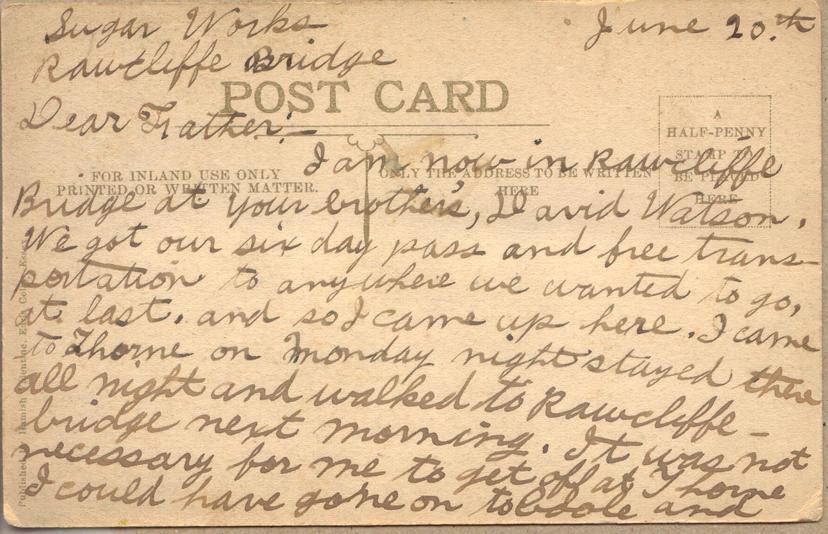 Sugar Works
June 20.th
Rawcliffe Bridge
POST CARD
Dear Father:—
A
HALF-PENNY
STAMP TO
BE PLACED
HERE
I am now in Rawcliffe
FOR INLAND USE ONLY
PRINTED OR WRITTEN MATTER.
ONLY THE ADDRESS TO BE WRITTEN
HERE
Bridge at your brother's, David Watson.
We got our six day pass and free trans-
portation to anywhere we wanted to go,
at last. and so I came up here. I came
to Thorne on Monday night stayed there
all night and walked to Rawcliffe-
bridge next morning. It was not
necessary for me to get off at Thorne
I could have gone on to Goole and
Published